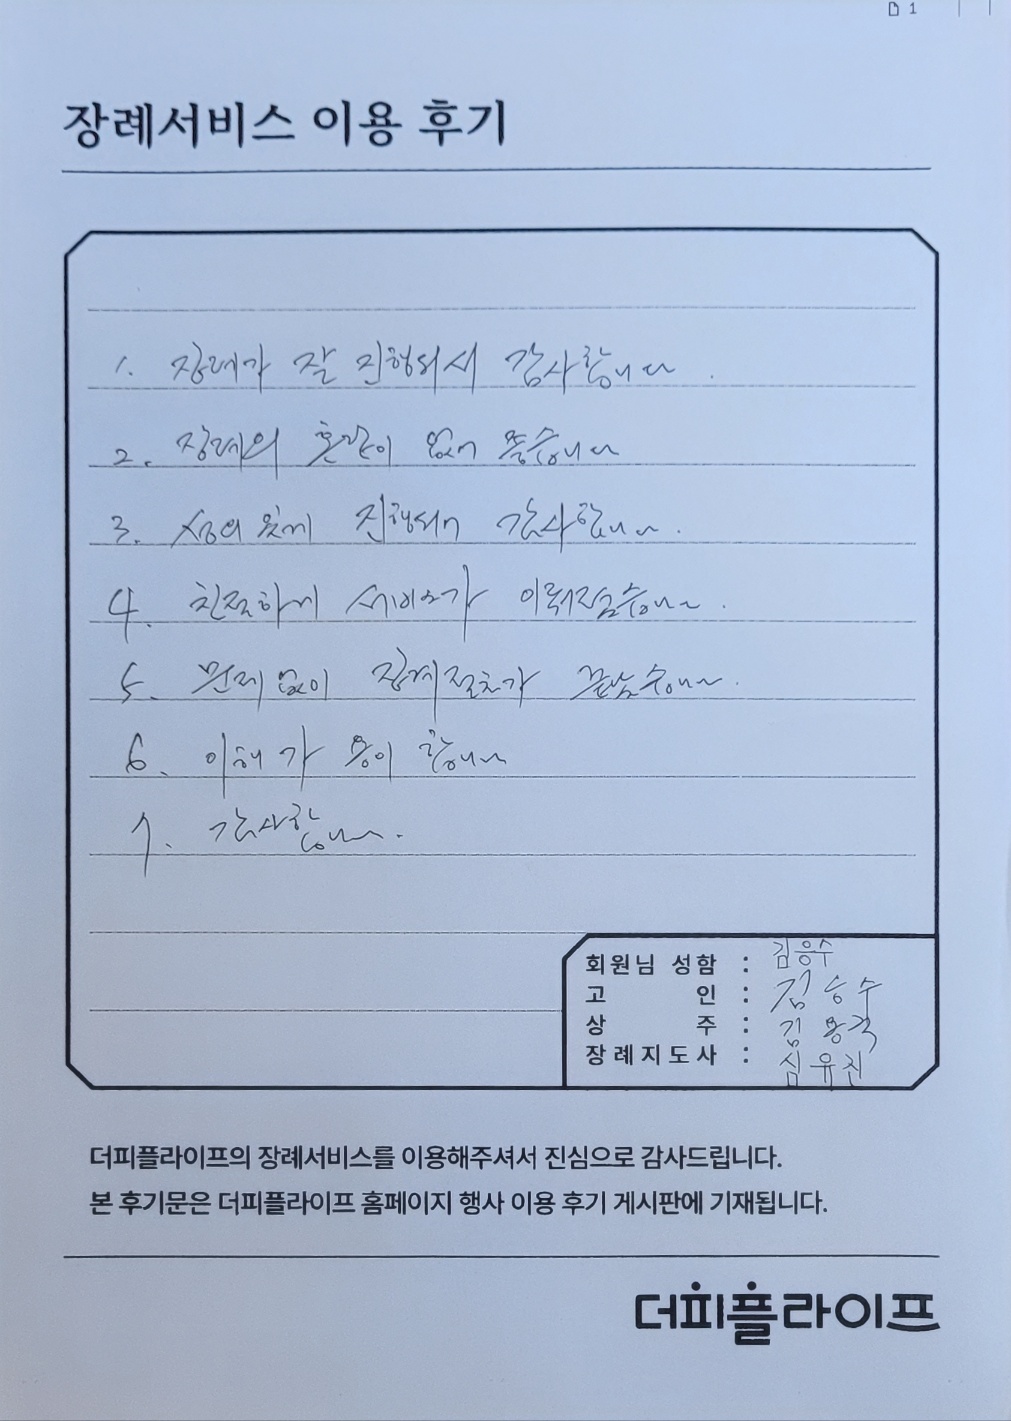 1
장례서비스 이용 후기
1. 장례가 잘 진행되서 감사합니다.
2. 장례의 혼란이 없어 좋습니다
3. 성의있게 진행되어 감사합니다.
4. 친절하게 서비스가 이뤄졌습니다.
5. 문제없이 장례절차가 끝났습니다.
6. 이해가 용이 합니다
7. 감사합니다.
회원님 성함 : 김응수
고 인 : 김승수
상 주 : 김용
장례지도사 : 심유진
더피플라이프의 장례서비스를 이용해주셔서 진심으로 감사드립니다.
본 후기문은 더피플라이프 홈페이지 행사 이용 후기 게시판에 기재됩니다.
더피플라이프